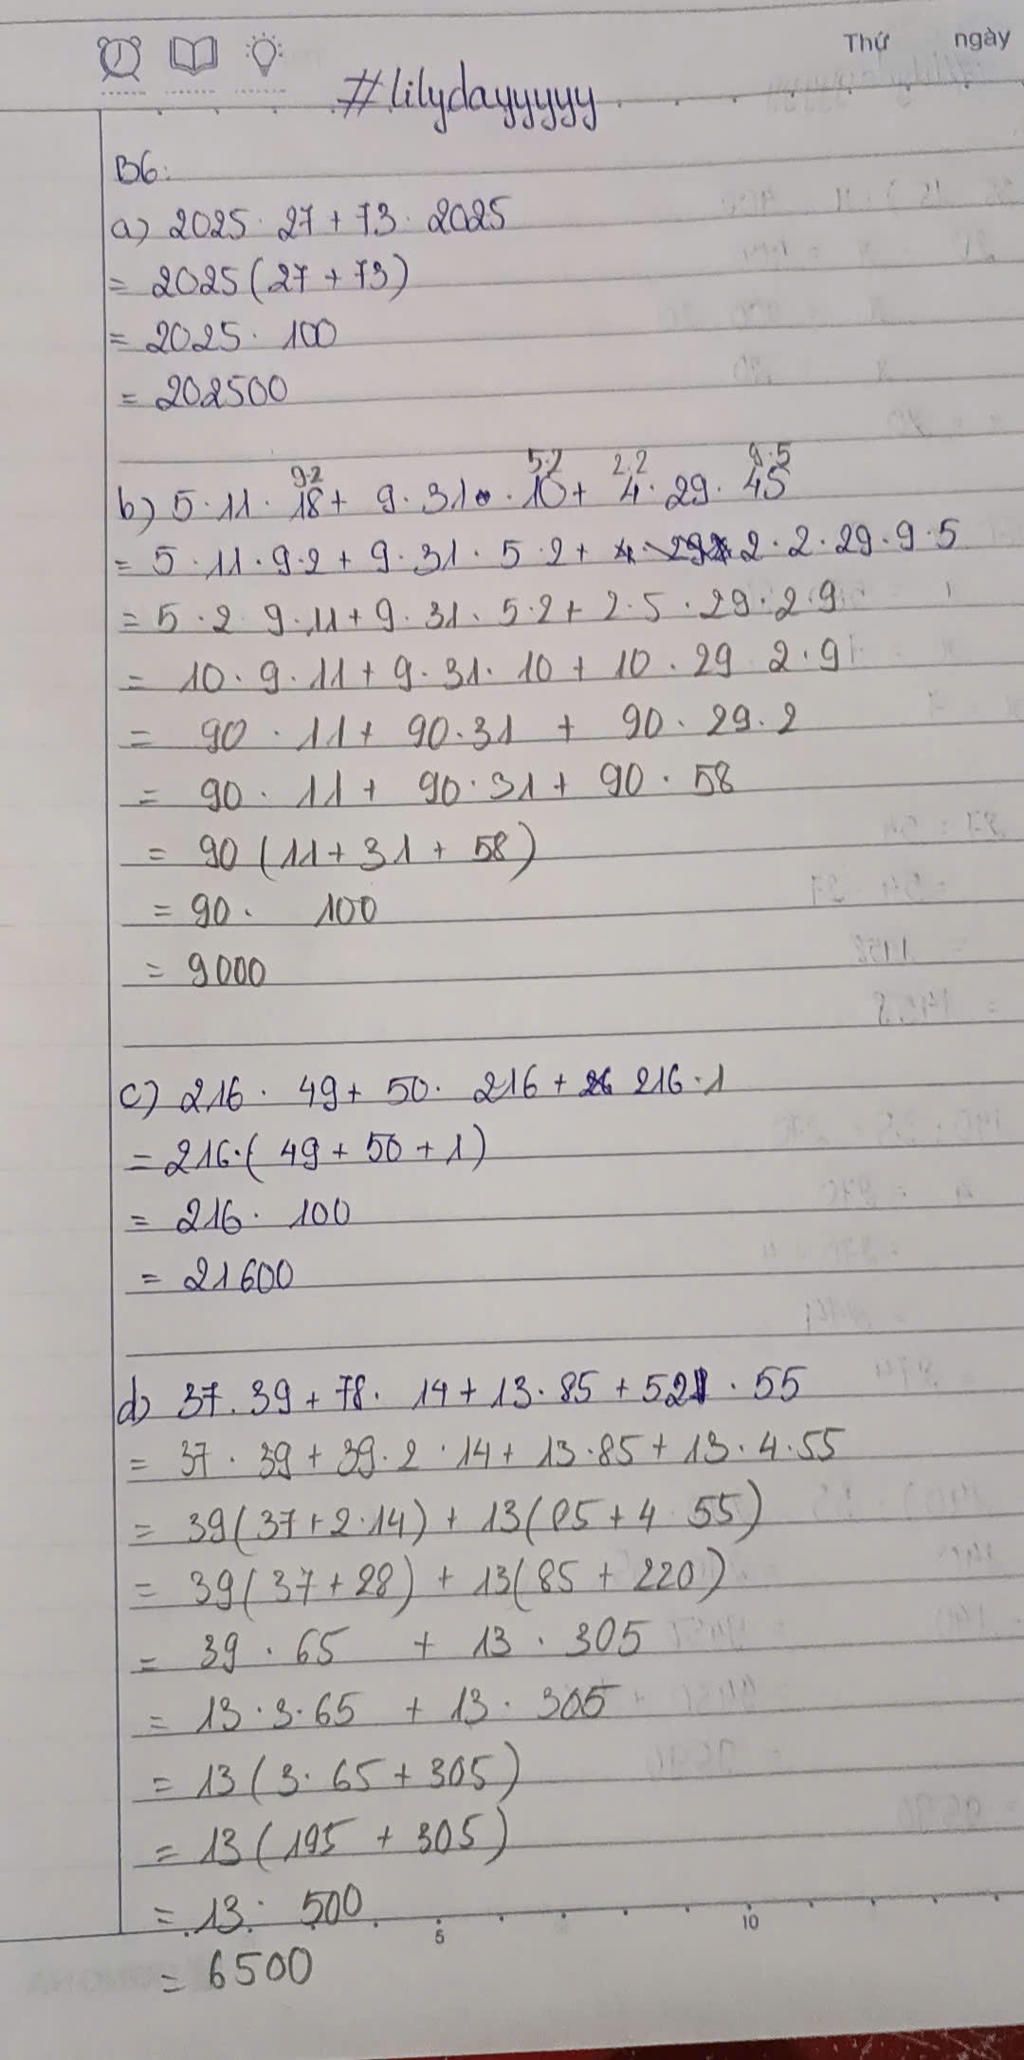 Thứ ngày
#lilydayyyyy
B6:
a) 2025 · 27 + 73 · 2025
= 2025 (27 + 73)
= 2025 · 100
= 202500
9·2 5·2 2·2 9·5
b) 5 · 11 · 18 + 9 · 31 · 10 + 4 · 29 · 45
= 5 · 11 · 9 · 2 + 9 · 31 · 5 · 2 + 2 · 2 · 29 · 9 · 5
= 5 · 2 9 · 11 + 9 · 31 · 5 · 2 + 2 · 5 · 29 · 2 · 9
= 10 · 9 · 11 + 9 · 31 · 10 + 10 · 29 2 · 9
= 90 · 11 + 90 · 31 + 90 · 29 · 2
= 90 · 11 + 90 · 31 + 90 · 58
= 90 (11 + 31 + 58)
= 90 · 100
= 9000
c) 216 · 49 + 50 · 216 + 216 · 1
= 216 · (49 + 50 + 1)
= 216 · 100
= 21600
d) 37 . 39 + 78 · 14 + 13 · 85 + 52 · 55
= 37 · 39 + 39 · 2 · 14 + 13 · 85 + 13 · 4 · 55
= 39 (37 + 2 · 14) + 13 (85 + 4 55)
= 39 (37 + 28) + 13 (85 + 220)
= 39 · 65 + 13 · 305
= 13 · 3 · 65 + 13 · 305
= 13 (3 · 65 + 305)
= 13 (195 + 305)
= 13 · 500
5 10
= 6500